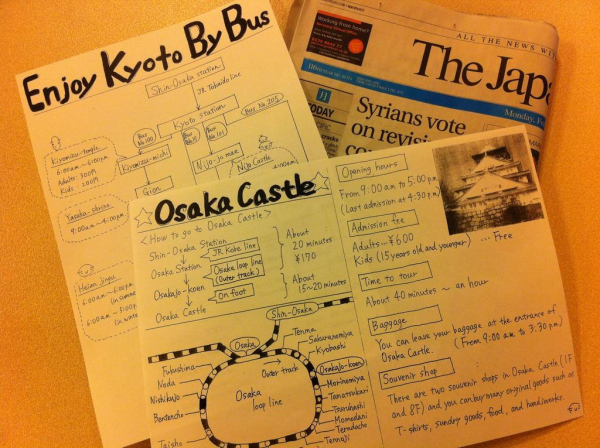 Enjoy Kyoto By Bus
Shin-Osaka station
JR Tokaido line
Kyoto station
Bus No.100
Bus No. 202
Kiyomizu-temple
6:00am~6:00pm
Adults: 300円
Kids: 200円
Kiyomizu-michi
Nijo-jo mae
Nijo Castle
Gion
Yasaka-shrine
9:00am~4:00pm
Heian Jingu
6:00am~6:00pm
6:00am~5:00pm
Working from home?
ALL THE NEWS WI
The Japa
Monday, F
TODAY
Syrians vote
on revisi
Osaka Castle
<How to go to Osaka Castle>
Shin-Osaka Station
JR Kobe line
Osaka Station
Osaka loop line
(Outer track)
Osakajo-koen
On foot
Osaka Castle
About
20 minutes
¥170
About
15~20 minutes
Shin-Osaka
Osaka
Tenma
Sakuranomiya
Kyobashi
Outer track
Osakajo-koen
Fukushima
Noda
Nishikujo
Bentencho
Taisho
Osaka
loop line
Morinomiya
Tamatsukuri
Tsuruhashi
Momodani
Teradacho
Tennoji
Opening hours
From 9:00 a.m. to 5:00 p.m.
(Last admission at 4:30 p.m.)
Admission fee
Adults - ¥600
Kids (15 years old and younger) ... Free
Time to tour
About 40 minutes ~ an hour
Baggage
You can leave your baggage at the entrance of
Osaka Castle. (From 9:00 a.m. to 3:30 p.m.)
Souvenir shop
There are two souvenir shops in Osaka Castle (1F
and 8F) and you can buy many original goods such as
T-shirts, sundry goods, food, and handiworks.